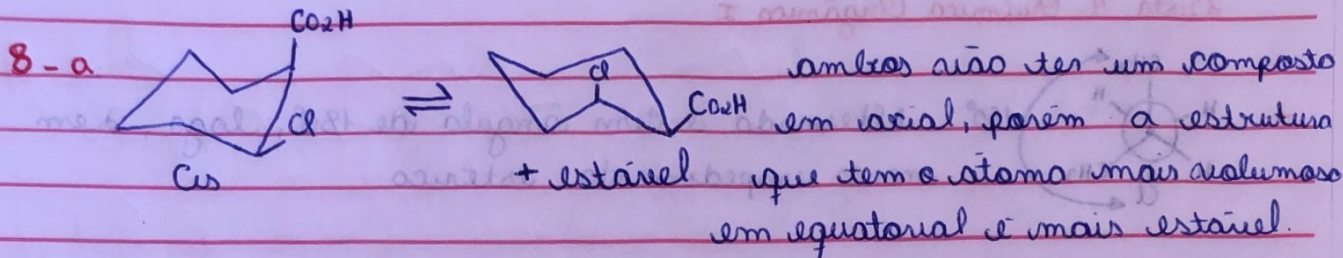 CO2H
8-a
Cl
Cl
CO2H
Cis
+ estável
ambos vão ter um composto
em axial, porém a estrutura
que tem o átomo mais volumoso
em equatorial é mais estável.